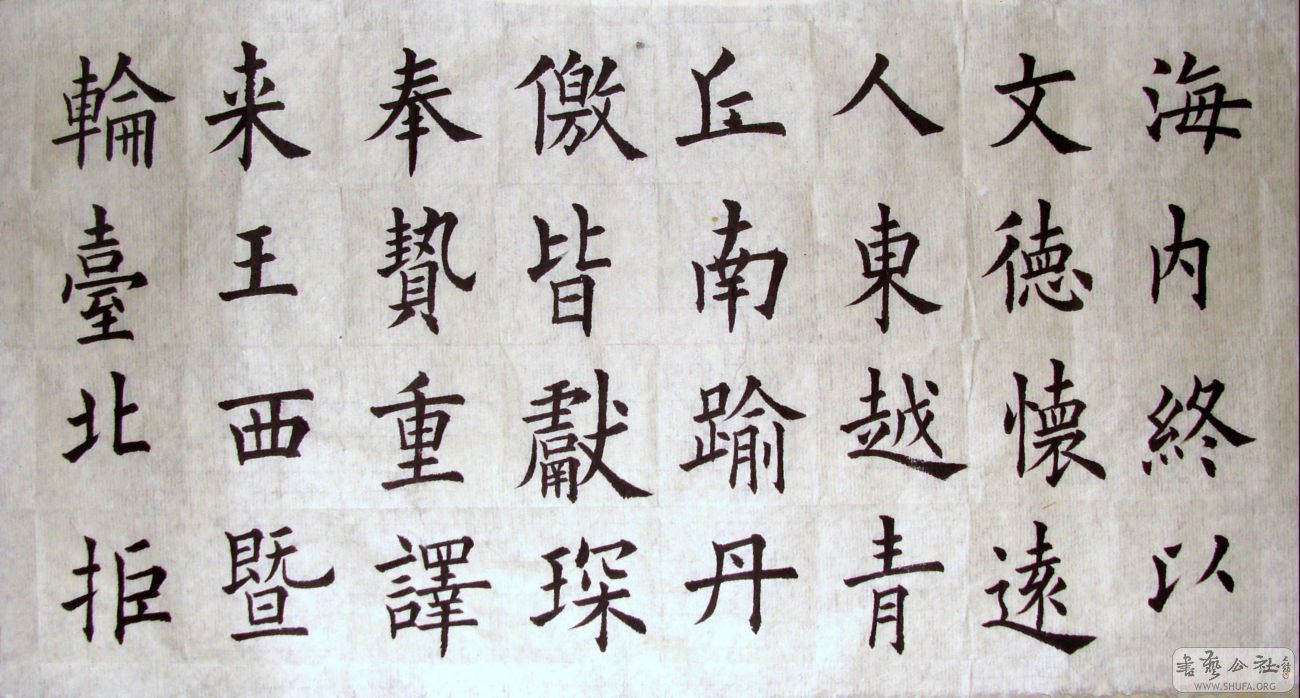 海内終以
文德懷遠
人東越青
丘南踰丹
儌皆獻琛
奉贄重譯
来王西暨
輪臺北拒
書藝公社
WWW.SHUFA.ORG